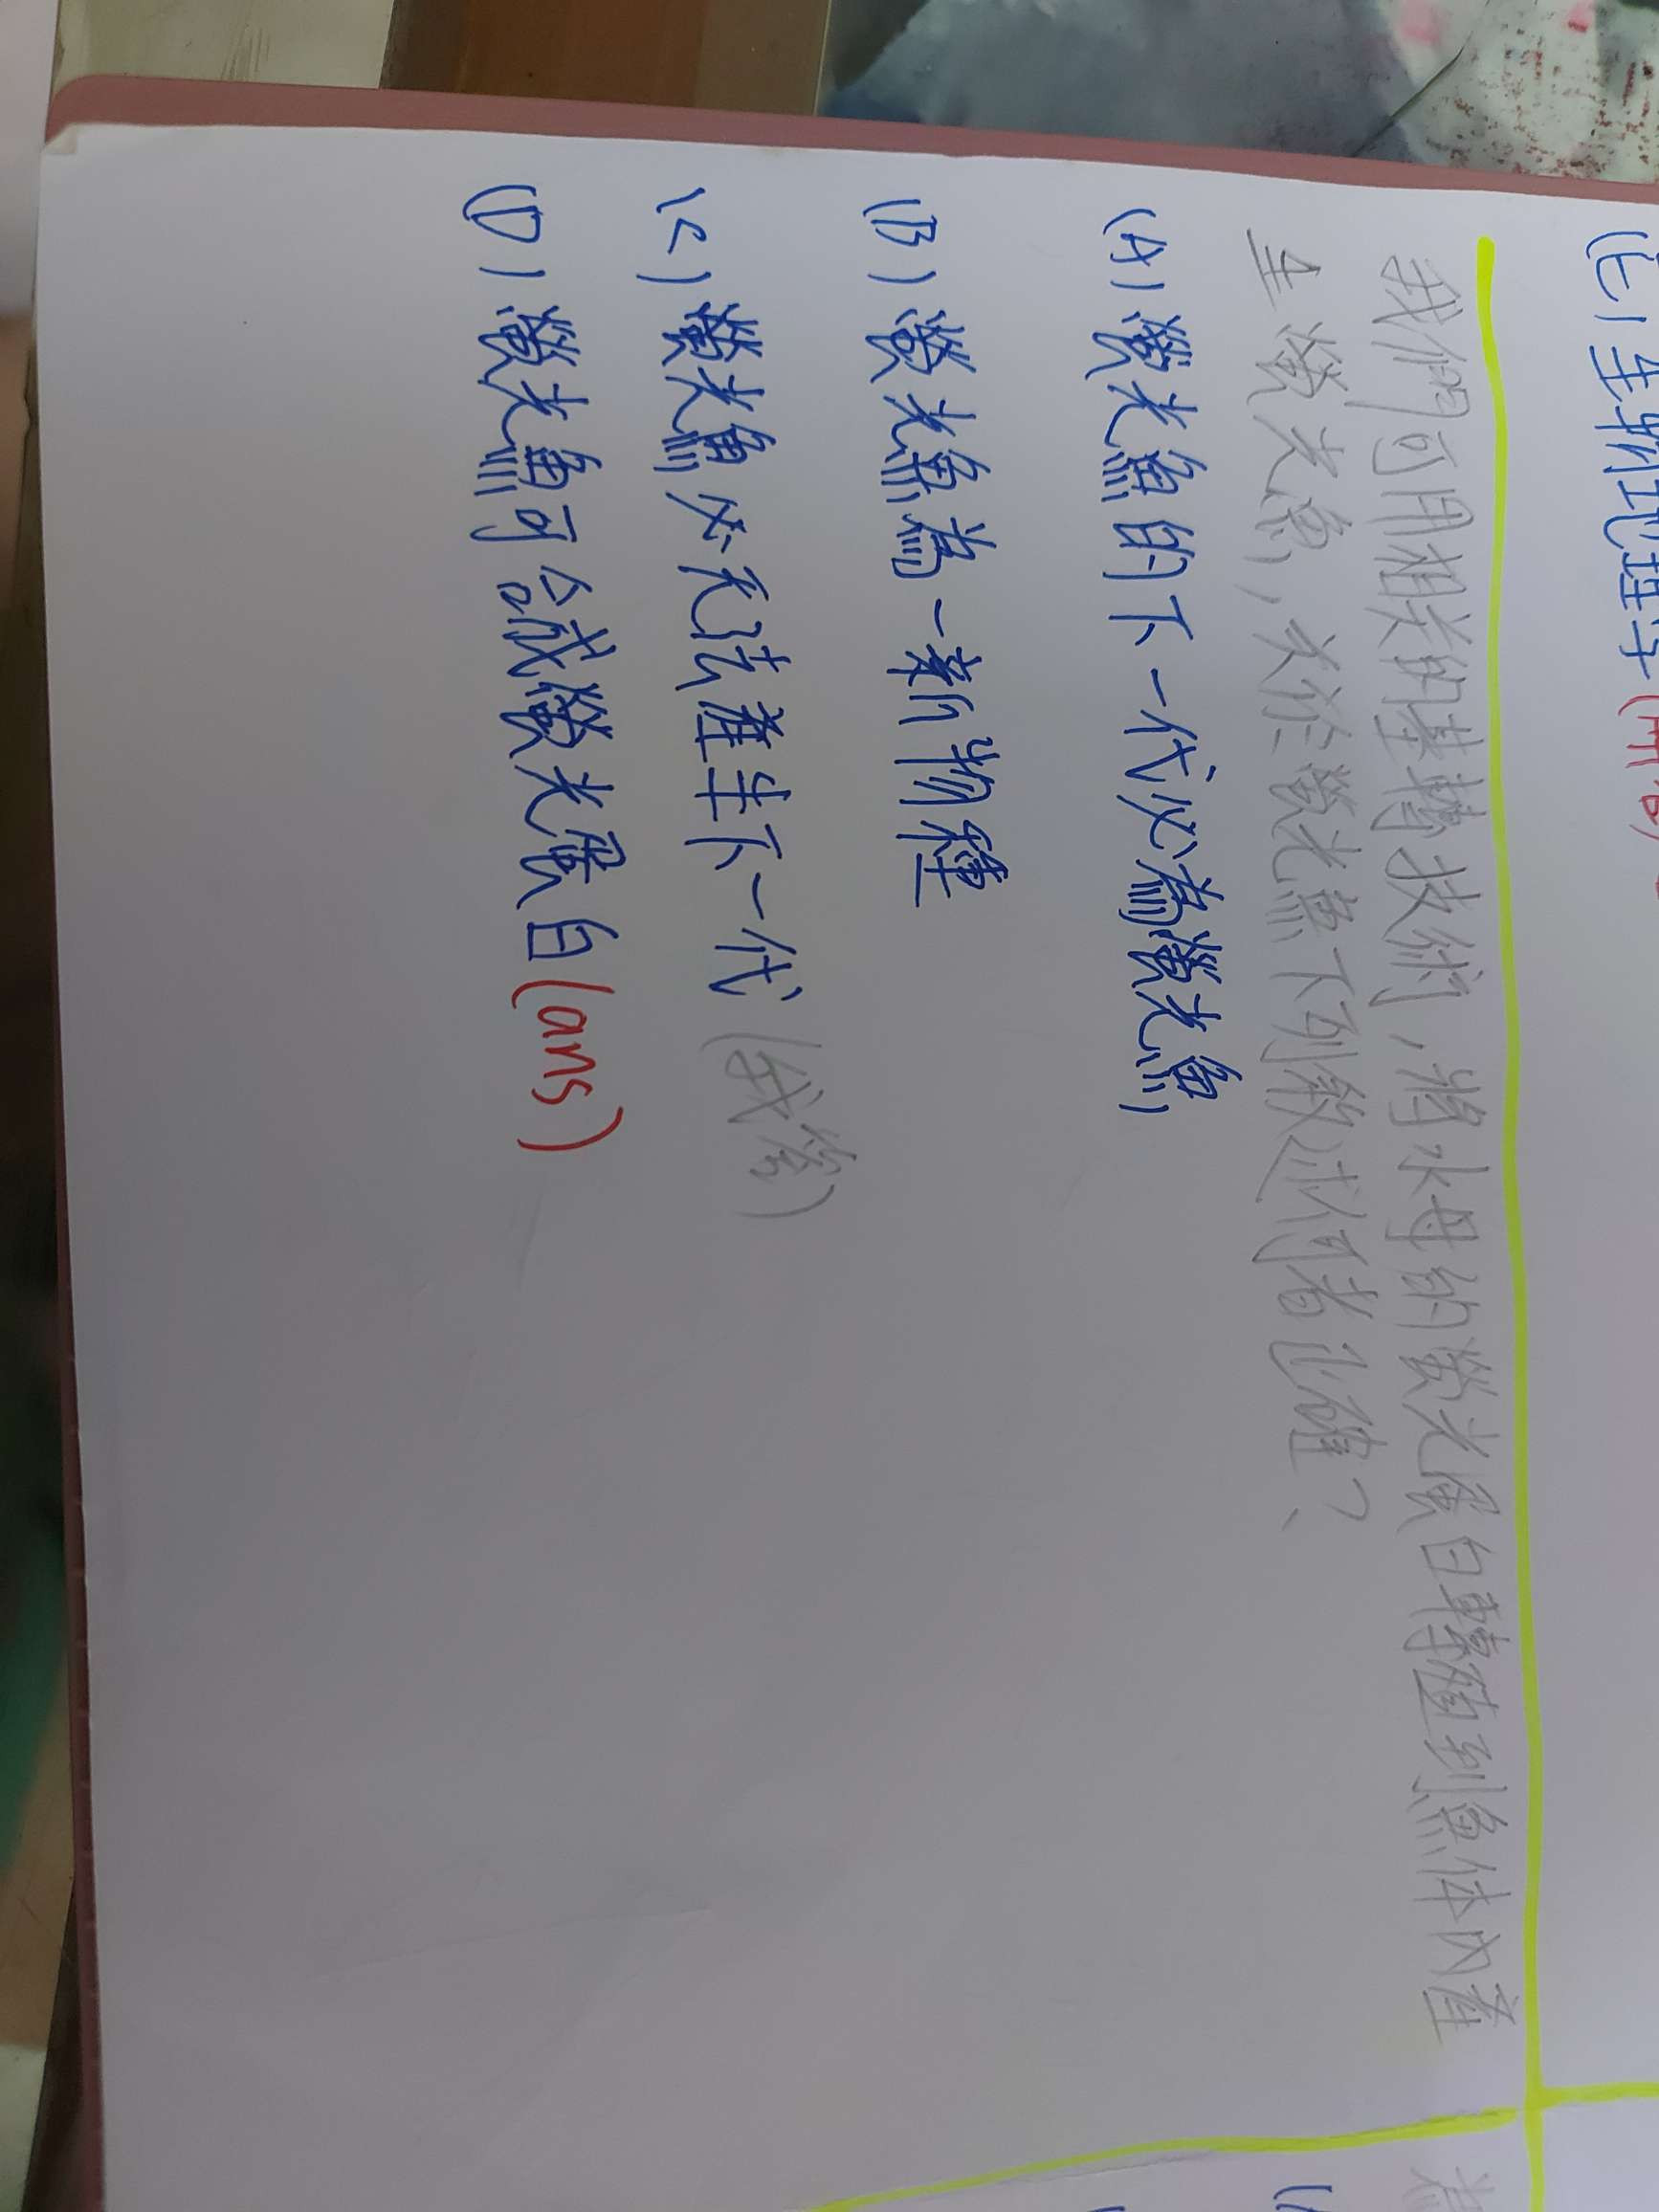 (E) 生物地理學
我們可用相关的基轉技術,將水母的螢光蛋白轉殖到魚体内產
生螢光魚,关於螢光魚下列敘述何者正確?
(A) 螢光魚的下一代必為螢光魚
(B) 螢光魚為一新物種
(C) 螢光魚必无法產生下一代 (我答)
(D) 螢光魚可合成螢光蛋白 (ans)